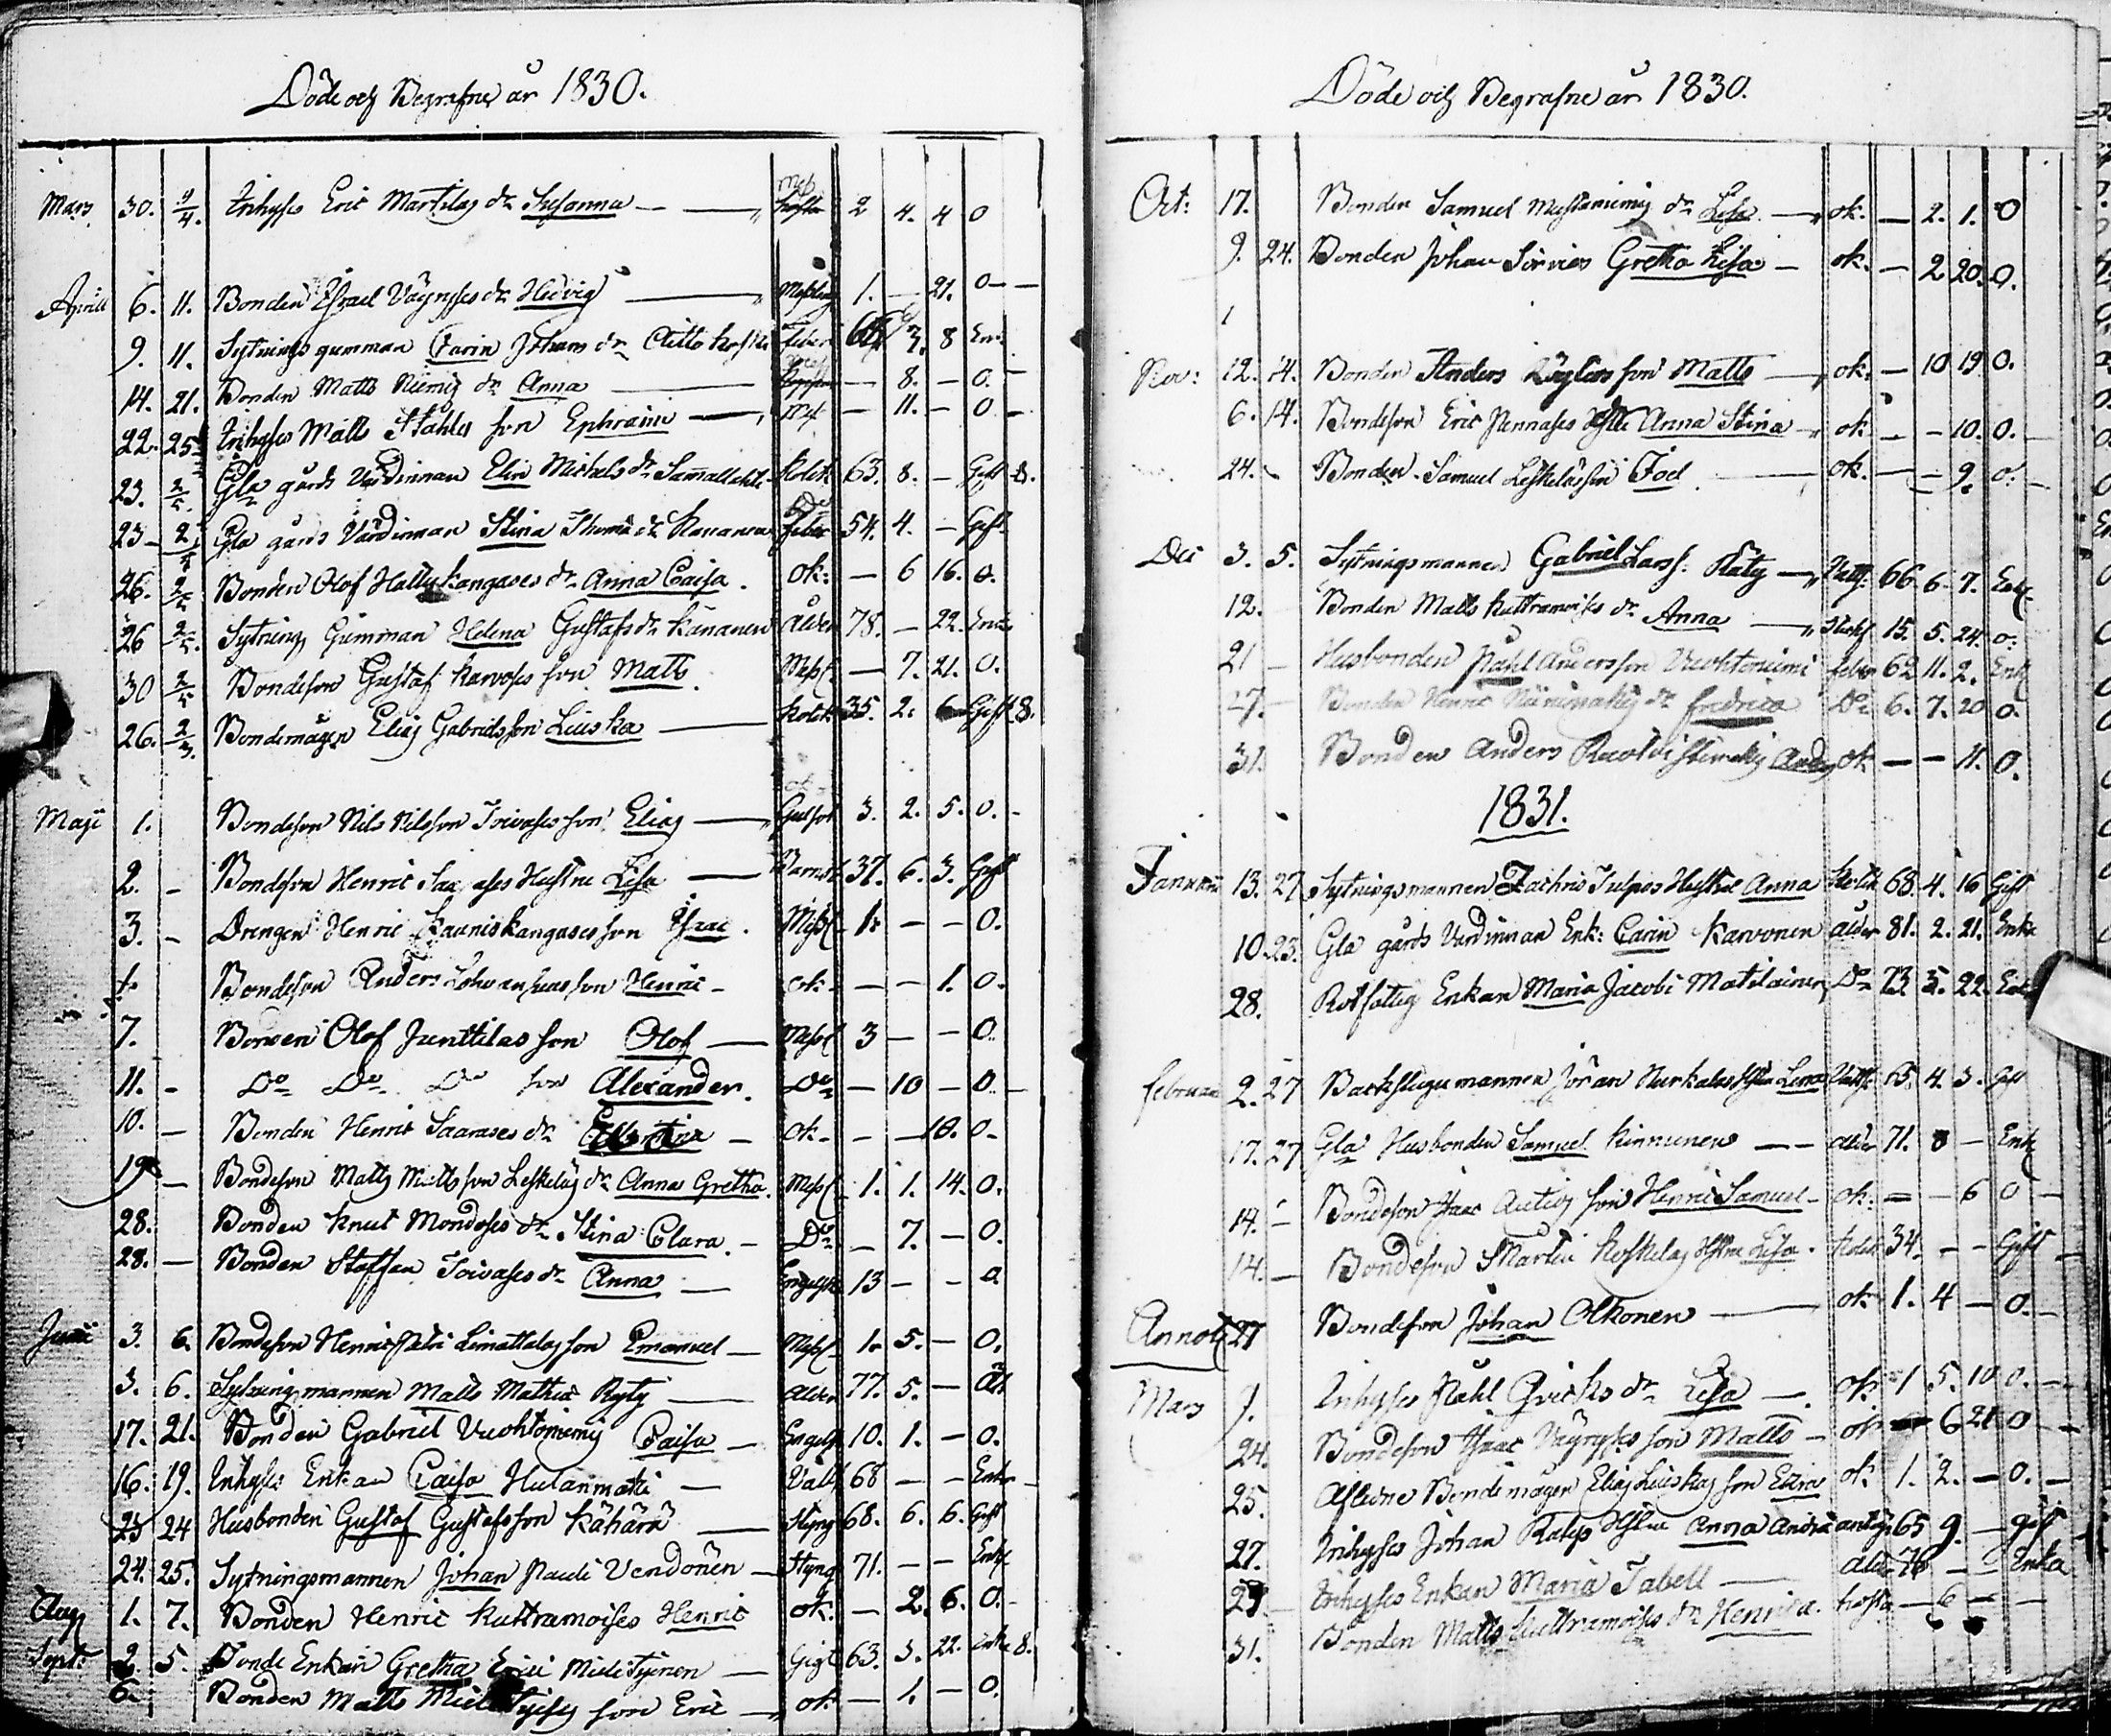 Döde och Begrafne år 1830.
Mars 30. 4/4. Inhyses Eric Martilas dr Susanna Mess hosta 2 4. 4 0
Aprill 6. 11. Bonden Israel Väyryses dr Hedvig Messling 1. — 21. 0
9. 11. Sytnings gumman Carin Johans dr feber 7. 8 Enk:
14. 21. Bonden Matts Niemis dr Anna — 8. — 0.
22. 25. Inhyses Matts Ståhles son Ephraim — 11. — 0
23. 2/5. Gla gårds Värdinnan Elin Michels dr Kolik 63. 8. — Gift 8.
23 2/5 Gla gårds Värdinnan Stina Thomæ dr Kananen feber 54. 4. — Gift
26. 2/5 Bonden Olof Hallykangases dr Anna Caisa. ok: — 6 16. 0.
26 2/5. Sytning Gumman Helena Gustafs dr Kananen Ålder 78. — 22. Enka
30 2/5 Bondeson Gustaf Karvoses son Matts. Mess — 7. 21. 0.
26. 2/3. Bondemågen Elias Gabrielsson Liuska Kolik 35. 2. 6 Gift 8.
Maji 1. Bondeson Nils Nilsson Toivases son Elias Gulsot 3. 2. 5. 0.
2. — Bondeson Henric Saarases Hustru Lisa Barnsb 37. 6. 3. Gift
3. — Drengen Henric Kauniskangases son Isaac. Mess 1. — — 0.
Bondeson Anders son Henric ok. — — 1. 0.
7. Bonden Olof Junttilas son Olof Mess 3 — — 0.
11. — Do Do Do son Alexander. Do — 10 — 0.
10. — Bonden Henric Saarases dr ok. — — 18. 0.
19 — Bondeson Matts Mattsson Leskeläs dr Anna Gretha. Mess 1. 1. 14. 0.
28. Bonden Knut Mondoses dr Stina Clara. Do — 7. — 0.
28. — Bonden Staffan Toivases dr Anna 13 — — 0
Junii 3. 6. Bondeson Henric Petri Limattalas son Emanuel Mess 1. 5. — 0.
3. 6. Sytningmannen Matts Mathiæ Ryty Ålder 77. 5. —
17. 21. Bonden Gabriel Vuohtoniemis Caisa Engelsk 10. 1. — 0.
16. 19. Inhyses Enkan Caisa HulanmäkiВатt 68 — — Enka
23 24 Husbonden Gustaf Gustafsson Kähärä Styng 68. 6. 6. Gift
24. 25. Sytningsmannen Johan Pauli Vendonen Styng 71. — — Enkl
Aug 1. 7. Bonden Henric Kuttramoises Henric ok. — 2. 6. 0.
Sept: 2. 5. Torde Enkan Gretha Erici Mieletyinen Gigt 63. 3. 22. Enka 8.
6. Bonden Matts son Eric ok — 1. — 0.
Döde och Begrafne år 1830.
Oct: 17. Bonden Samuel Mustaniemis dr Lisa ok. — 2. 1. 0
9. 24. Bonden Johan Sirviös Gretha Lisa ok. — 2 20. 0.
Nov: 12. 14. Bonden Anders son Matts ok. — 10 19 0.
6. 14. Bondeson Eric Pennases Anna Stina ok — — 10. 0.
24. Bonden Samuel Leskeläs son Joel ok. — — 9. 0.
Dec 3. 5. Sytningsmannen Gabriel Larss. Räty Vatts. 66. 6. 7. Enkl
12. Bonden Matts Kuttramoises dr Anna 15. 5. 24. 0.
21 — Husbonden Påhl Andersson Vuohtoniemi feber 62 11. 2. Enkl
27. — Bonden Henric Niinimäkis dr Fredrica Do 6. 7. 20 0.
31. Bonden Anders Anders ok — — 11. 0.
1831.
Januarii 13. 27 Sytningsmannen Zachris Tulpos Hustru Anna Kolik 68. 4. 16 Gift
10. 23. Gla gårds Värdinnan Enk: Carin Karvonen ålder 81. 2. 21. Enka
28. Rotfattig Enkan Maria Jacobi Matilainen Do 73. 5. 22. Enk
Februari 2. 27 Backstugu mannen Jöran Hurkalas Hstru Lena 65. 4. 3. Gift
17. 27 Gla Husbonden Samuel Kinnunen ålder 71. 8 — Enkl
14. — Bondeson Isaac Auties son Henric Samuel ok: — — 6 0
14. — Bondeson Martin Koskelas Hstru Lisa. Kolik 34. — — Gift
27 Bondeson Johan Olkonen ok. 1. 4 — 0.
Mars 9. Inhyses Påhl dr Lisa ok: 1 5. 10 0.
24. Bondeson Isaac Väyryses son Matts ok 6 21 0
25. Aflidne Bondemågen Elias Liuskas son Esra ok. 1. 2. — 0.
27. Inhyses Johan Hstru Anna Andræ 65 9. — gift
29. — Inhyses Enkan Maria Tabell ålder 76 — — Enka
31. Bonden Matts Kuttramoises dr Henrica. hosta — 6 — —